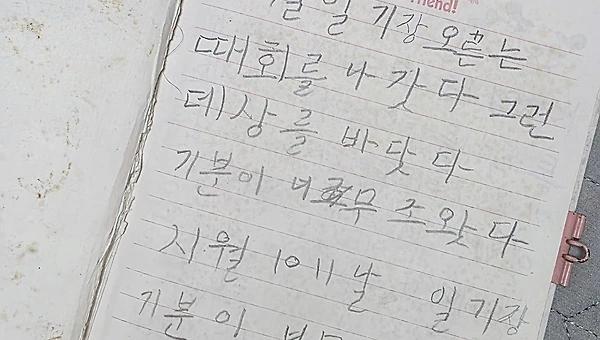 iend!
월 일 기장 오른는
때회를 나 갓 다 그런
데 상를 바닷다
기분이 너무 조왓다
시월 1011날 일기장
기분이